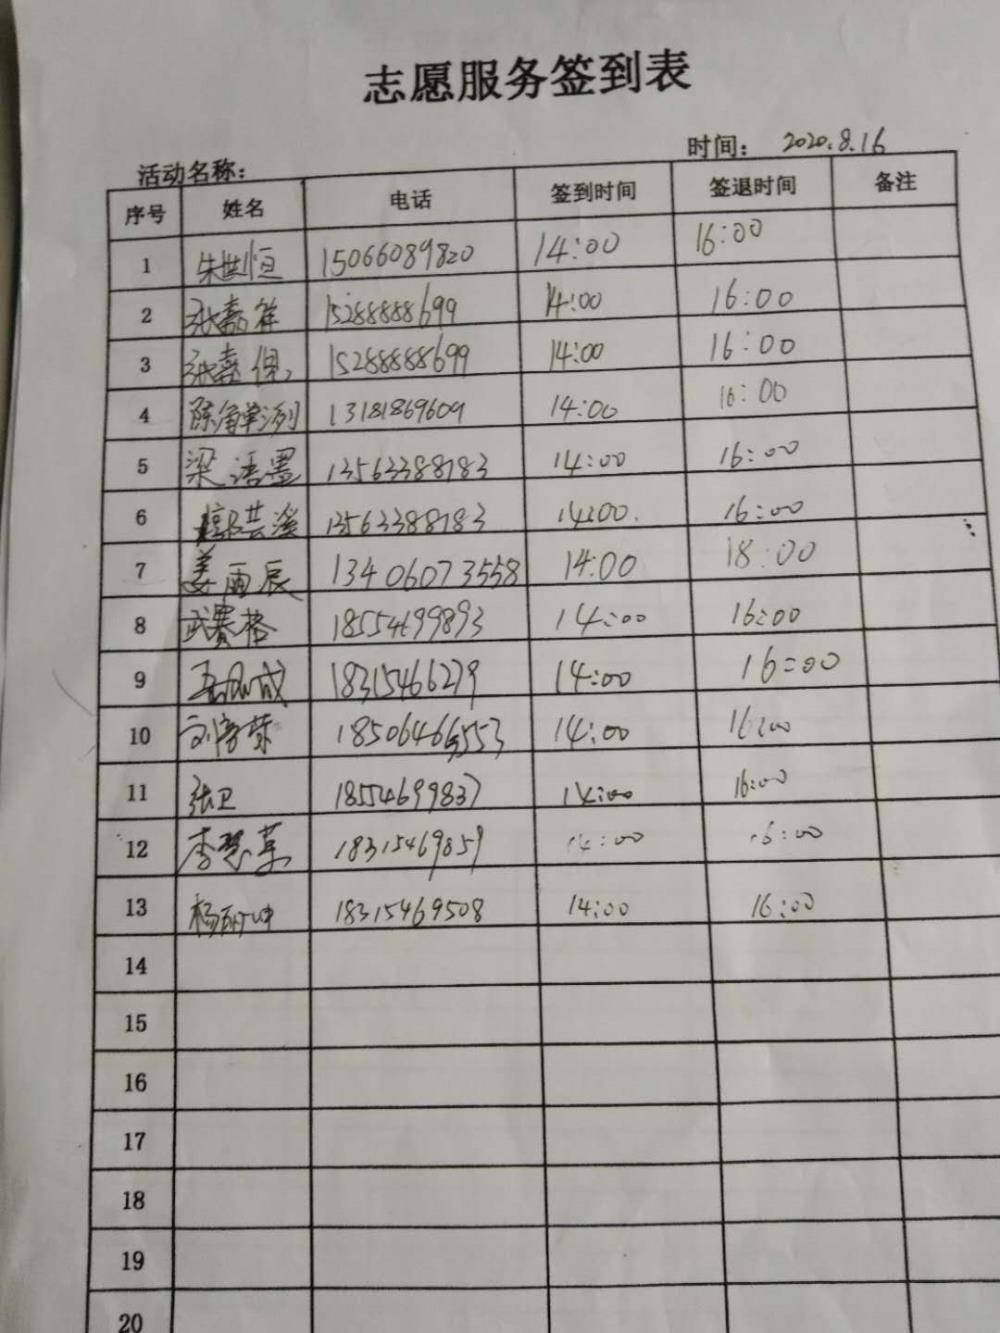 志愿服务签到表
时间： 2020.8.16
活动名称：
序号 姓名 电话 签到时间 签退时间 备注
1 朱世恒 15066089820 14:00 16:00
2 张嘉祥 15288888699 14:00 16:00
3 张嘉 15288888699 14:00 16:00
4 13181869609 14:00 16:00
5 梁语墨 13563388783 14:00 16:00
6 芸溪 13563388783 14:00. 16:00
7 姜雨辰 13406073558 14:00 18:00
8 武赛格 18554699893 14:00 16:00
9 18315466279 14:00 16:00
10 18506466553 14:00 16:00
11 张卫 18554699837 14:00 16:00
12 李慧英 18315469859 14:00 16:00
13 杨丽坤 18315469508 14:00 16:00
14
15
16
17
18
19
20